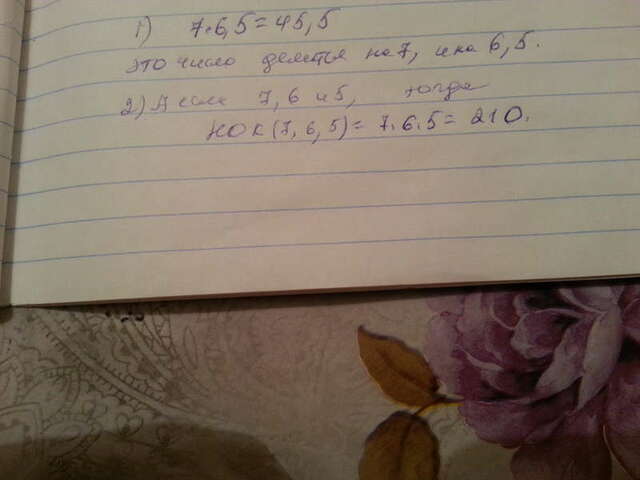 1) 7·6,5 = 45,5
это число делится на 7, и на 6,5.
2) А если 7, 6 и 5, тогда
НОК (7, 6, 5) = 7·6·5 = 210.